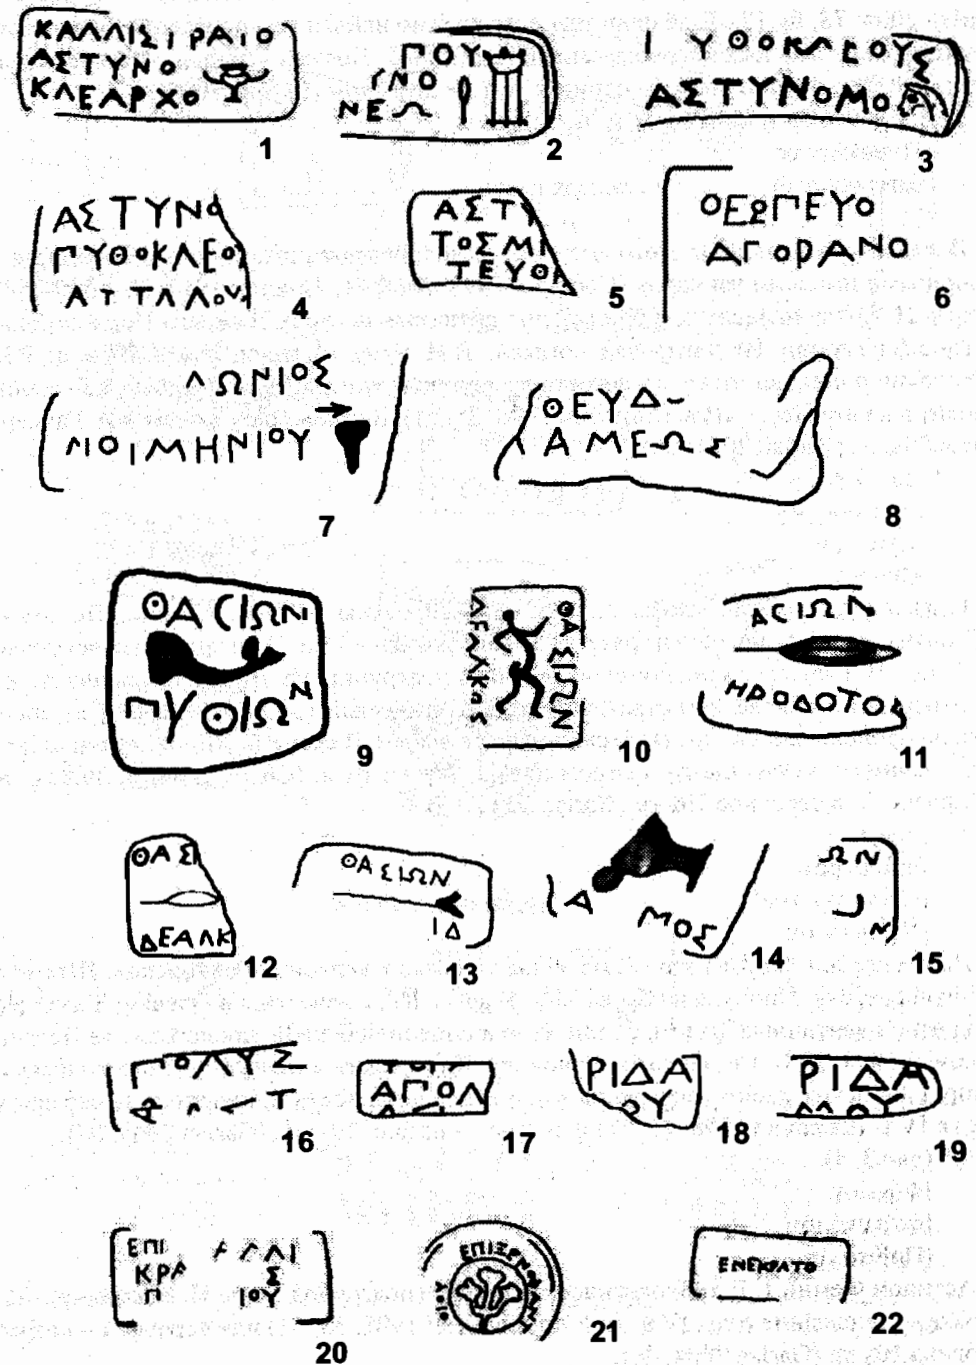 ΚΑΛΛΙΣΙΡΑΙΟ
ΑΣΤΥΝΟ
ΚΛΕΑΡΧΟ
1
ΓΟΥ
ΥΝΟ
ΝΕΩ
2
Ι ΥΘΟΚΛΕΟΥΣ
ΑΣΤΥΝΟΜΟ
3
ΑΣΤΥΝΟ
ΠΥΘΟΚΛΕΟ
ΑΤΤΑΛΟΥ
4
ΑΣΤΥ
ΤΟΣΜΙ
ΤΕΥΘ
5
ΘΕΩΓΕΥΟ
ΑΓΟΡΑΝΟ
6
ΛΩΝΙΟΣ
ΜΟΙΜΗΝΙΟΥ
7
ΘΕΥΔ
ΑΜΕΩΣ
8
ΘΑСΙΩΝ
ΠΥΘΙΩΝ
9
ΘΑΣΙΩΝ
ΔΕΑΛΚΟΣ
10
ΑСΙΩΝ
ΗΡΟΔΟΤΟ
11
ΘΑΣΙ
ΔΕΑΛΚ
12
ΘΑΣΙΩΝ
ΙΔ
13
Α
ΜΟΣ
14
ΩΝ
Ν
15
ΠΟΛΥΣ
Τ
16
ΑΠΟΛ
17
ΡΙΔΑ
ΟΥ
18
ΡΙΔΑ
ΟΥ
19
ΕΠΙ ΛΛΙ
ΚΡΑ Σ
Π ΙΟΥ
20
21
ΕΝΕΚΡΑΤΟ
22